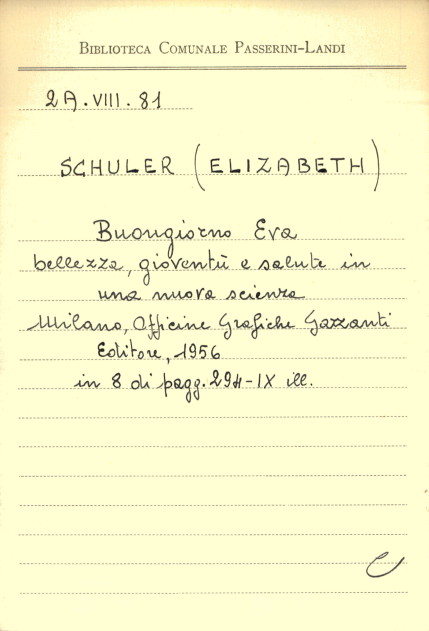 BIBLIOTECA COMUNALE PASSERINI-LANDI
2A.VIII.81
SCHULER (ELIZABETH)
Buongiorno Eva
bellezza, gioventù e salute in
una nuova scienza
Milano, Officine Grafiche Garzanti
Editore, 1956
in 8 di pagg. 294-IX ill.